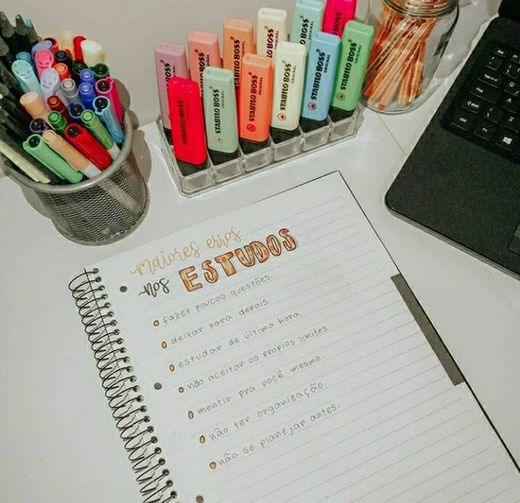 STABILO BOSS ORIGINAL
STABILO BOSS
STABILO BOSS
STABILO BOSS
STABILO BOSS
STABILO BOSS
STABILO BOSS
STABILO BOSS
STABILO BOSS
STABILO BOSS
STABILO BOSS
maiores erros
nos ESTUDOS
fazer poucas questões.
deixar para depois.
estudar de última hora.
não aceitar os próprios limites.
mentir pra você mesmo.
não ter organização.
não se planejar antes.